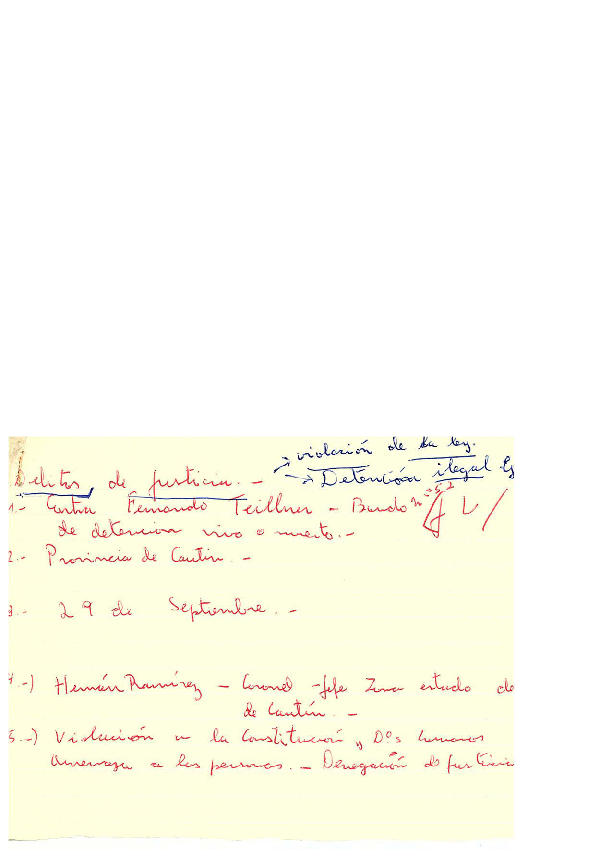 → violación de la ley.
Delitos, de justicia. - → Detención ilegal
1.- Contra Fernando Teillier - Bando nº 52
de detencion vivo o muerto.-
2.- Provincia de Cautin. -
3.- 29 de Septiembre. -
4.-) Hernán Ramírez - Coronel - Jefe Zona estado de
de Cautín. -
5.-) Violación a la Constitución y Dºs humanos
Amenaza a las personas. - Denegación de justicia